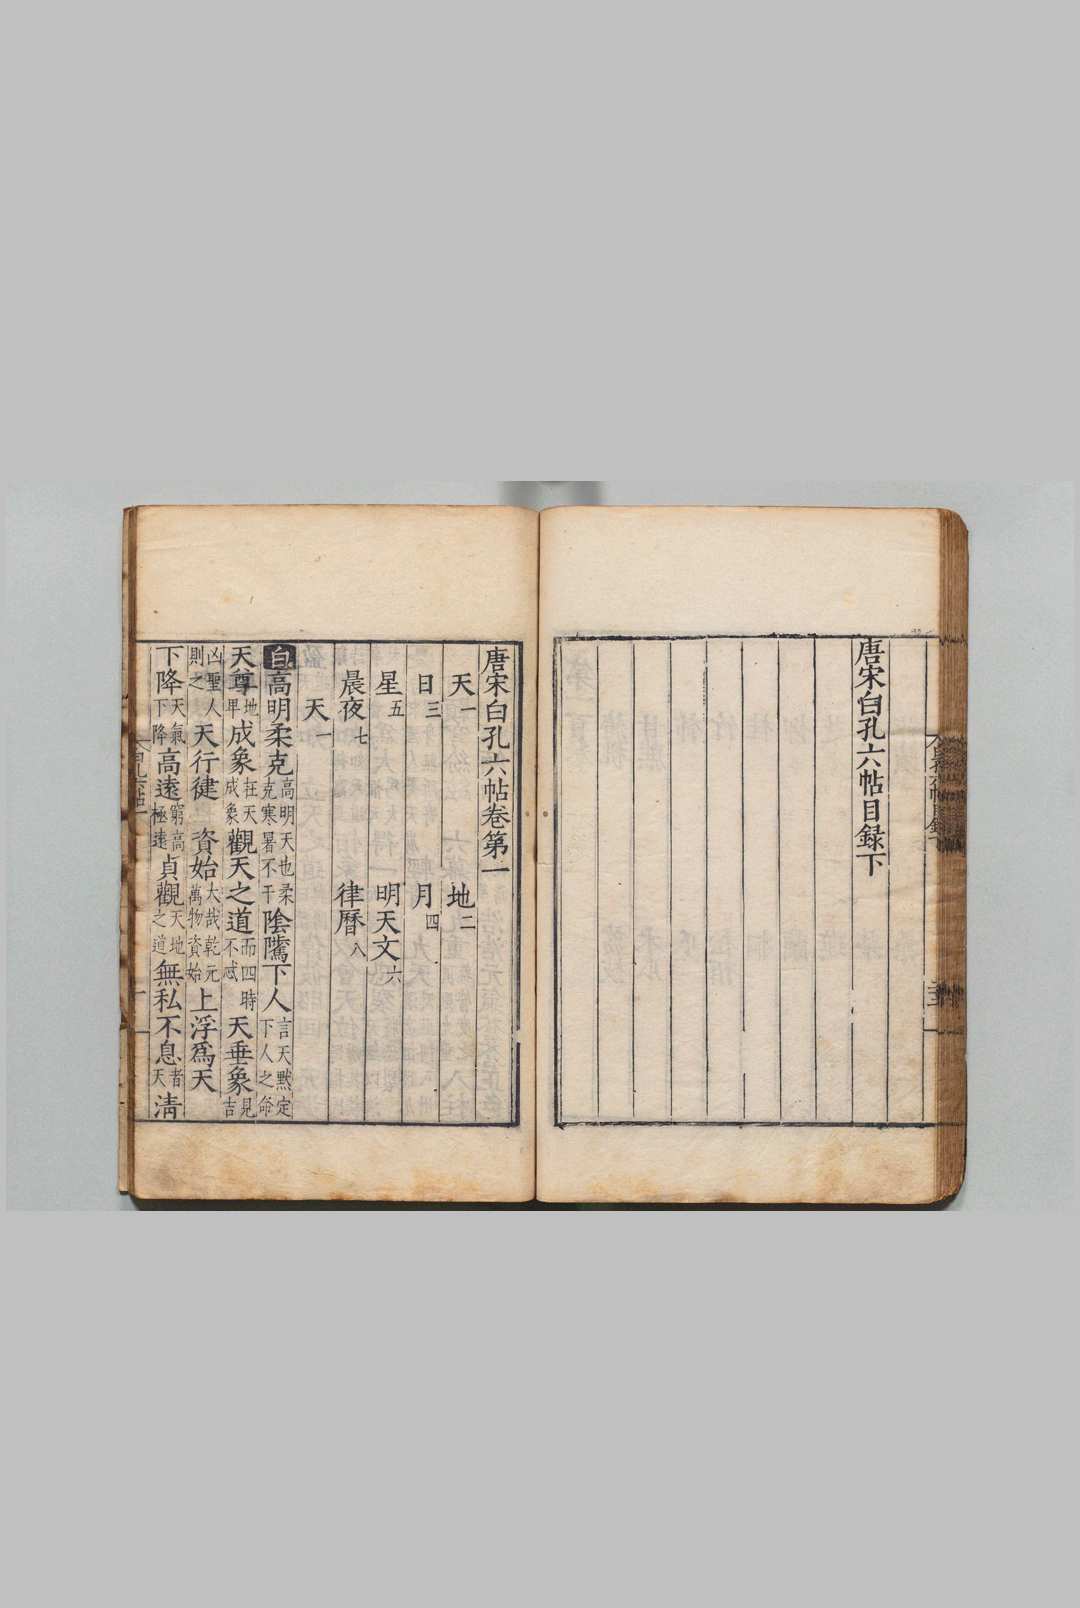 唐宋白孔六帖目録下
唐宋白孔六帖卷第一
天一 地二
日三 月四
星五 明天文六
晨夜七 律曆八
天一
白高明柔克高明天也柔克寒暑不干陰騭下人言天默定下人之命
天尊地卑成象在天成象觀天之道而四時不忒天垂象見吉
凶聖人則之天行健 資始大哉乾元萬物資始上浮爲天
下降天氣下降高遠窮高極遠貞觀天地之道無私不息者天清